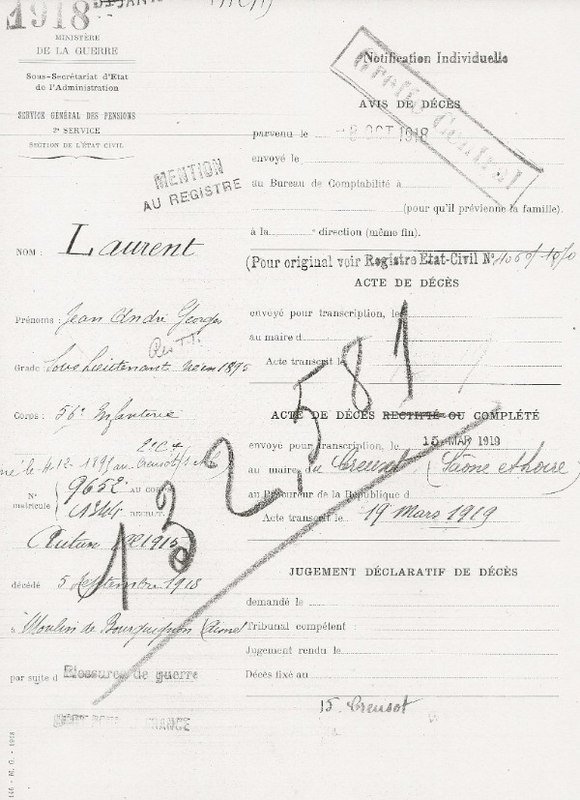 1918
MINISTÈRE
DE LA GUERRE
Sous-Secrétariat d'Etat
de l'Administration
SERVICE GÉNÉRAL DES PENSIONS
2e SERVICE
SECTION DE L'ÉTAT CIVIL
MENTION
AU REGISTRE
NOM : Laurent
Prénoms : Jean André Georges
Grade Sous Lieutenant
Corps : 56e Infanterie
né le 4.12.1895 au Creusot
N° matricule
9652 au corps
1344
Autun 1915
décédé 5 Septembre 1918
à Moulin de Bourguignon (Aisne)
par suite d Blessures de guerre
MORT POUR LA FRANCE
146 - M. G. - 1918
Greffe Central
Notification Individuelle
AVIS DE DÉCÈS
parvenu le -8 OCT 1918
envoyé le
au Bureau de Comptabilité à
(pour qu'il prévienne la famille).
à la e direction (même fin).
(Pour original voir Registre Etat-Civil N°
ACTE DE DÉCÈS
envoyé pour transcription, le
au maire d
Acte transcrit le
132,581
ACTE DE DÉCÈS RECTIFIÉ OU COMPLÉTÉ
envoyé pour transcription, le 15 MAR 1919
au maire du Creusot (Saône et Loire)
au Procureur de la République d
Acte transcrit le 19 Mars 1919
JUGEMENT DÉCLARATIF DE DÉCÈS
demandé le
Tribunal compétent :
Jugement rendu le
Décès fixé au
15. Creusot